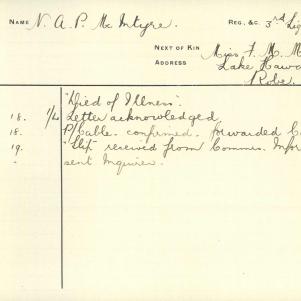 NAME N. A. P. McIntyre.
REG. &C. 3rd Lig
NEXT OF KIN Miss F. M. M
ADDRESS Lake Hawa
Robe.
"Died of Illness".
18. 1/4 Letter acknowledged
18. P/Cable. confirmed. forwarded
19. received from Commes. Infor
sent Inquirer.